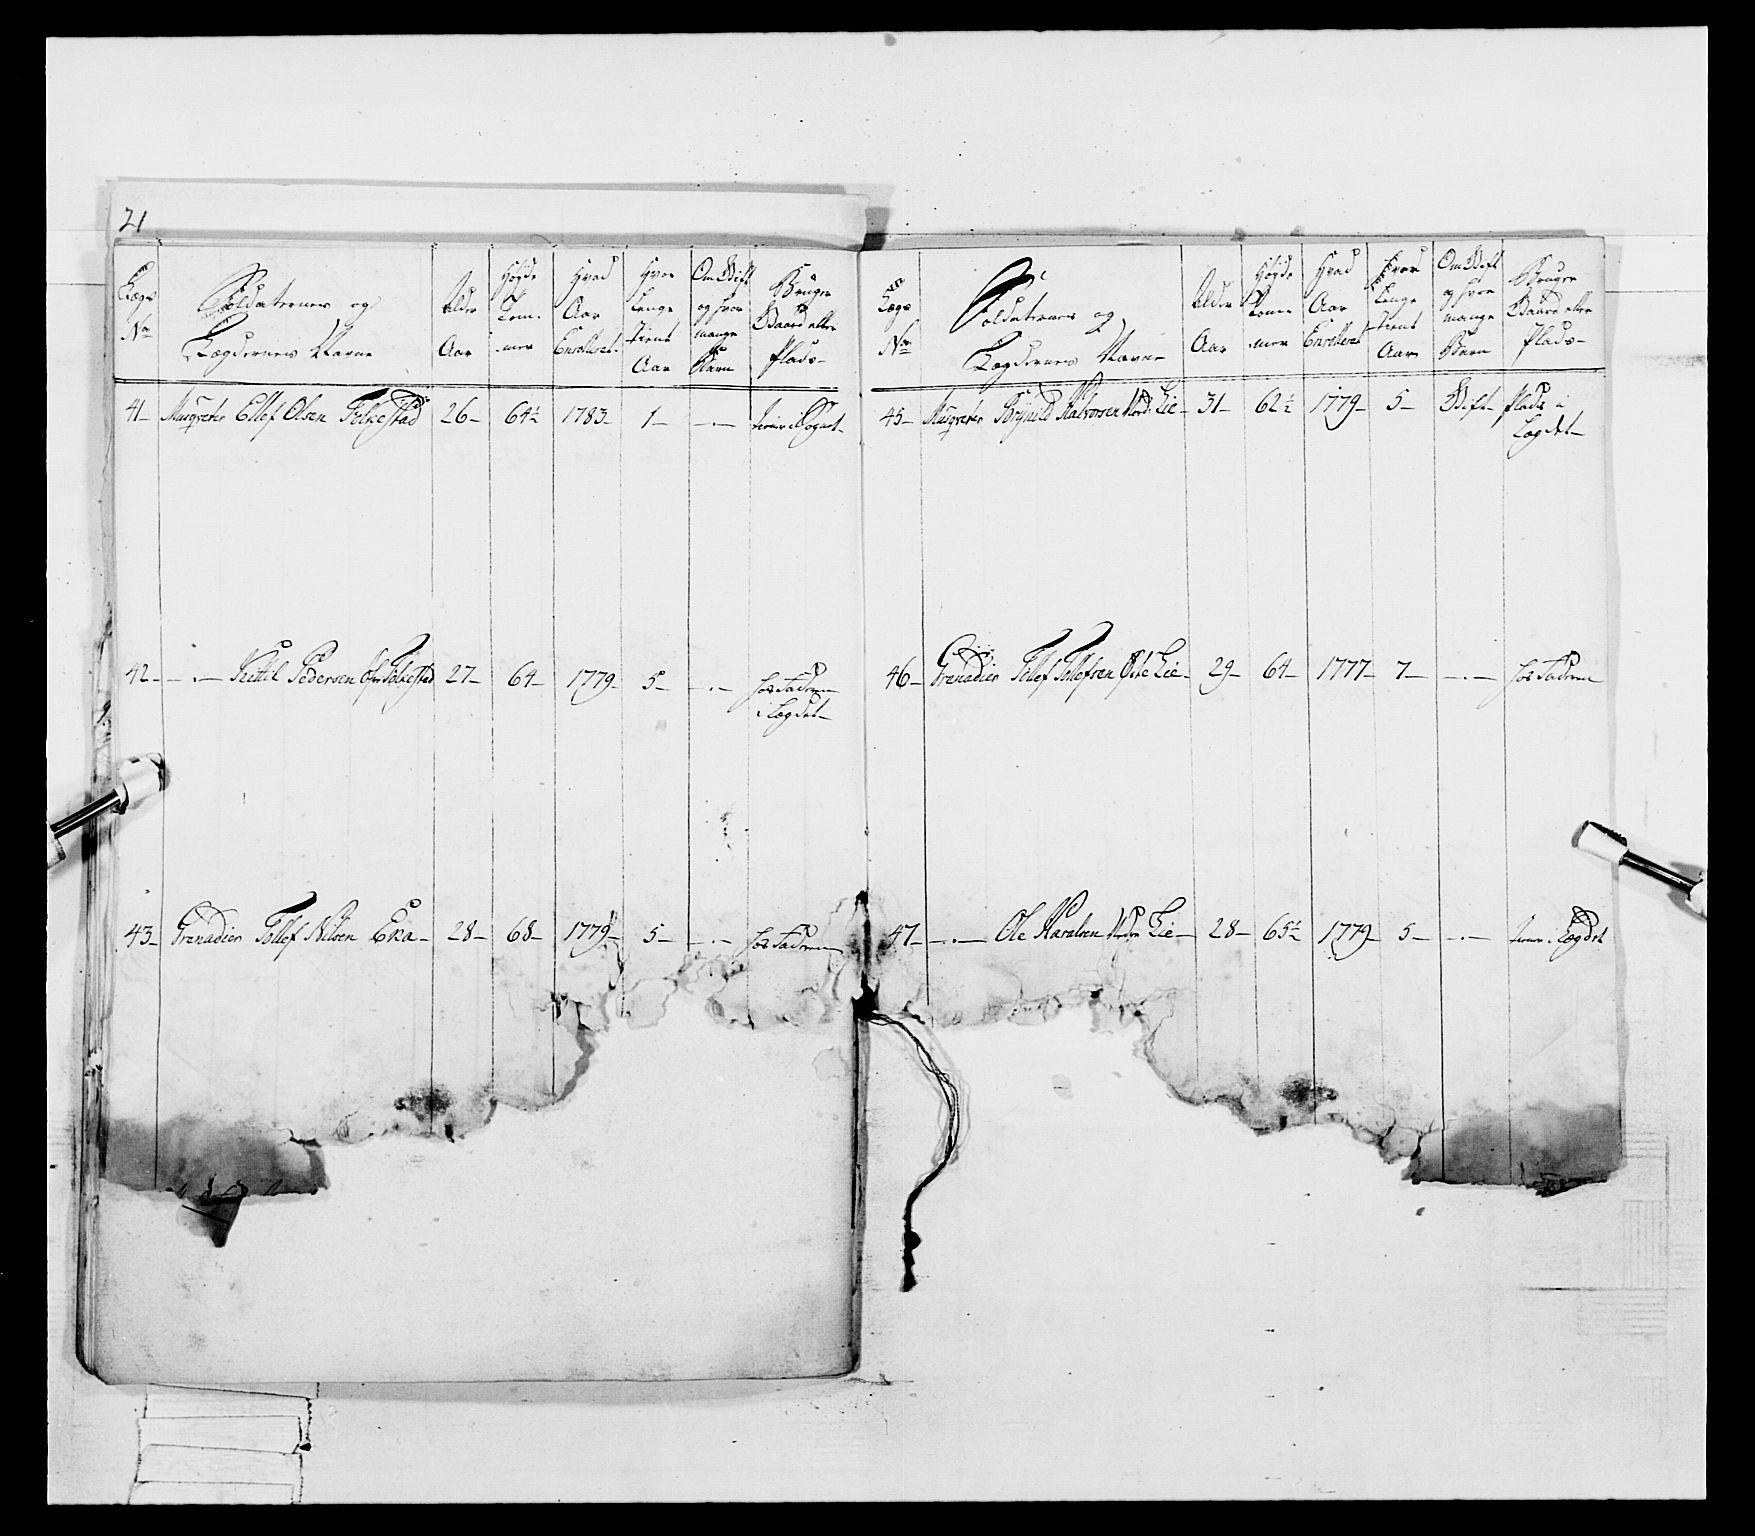 21
Lægs No Soldaternes og Lægdernes Navne Alder Aar Høyde Tom- mer Hvad Aar Enrolleret Hvor Længe tient Aar Om Gift og hvor mange Børn Bruger Gaard eller Plads
41 Musqveter Ellef Olsen Folkestad 26 64½ 1783 1 -.- tiener i Sognet
42 -.- Kittil Pedersen Folkestad 27 64 1779 5 -.- hos Faderen
i Lægdet
43 Grenadier Tollef Nilsen Eka 28 68 1779 5 -.- hos Faderen
Lægs No Soldaternes og Lægdernes Navne Alder Aar Høyde Tom- mer Hvad Aar Enrolleret Hvor Længe tient Aar Om Gift og hvor mange Børn Bruger Gaard eller Plads
45 Musqveter Brynild Halvorsen Nord Lie 31 62½ 1779 5 Gift Plads i
Lægdet
46 Grenadier Tollef Tollefsen Øste Lie 29 64 1777 7 -.- hos Faderen
47 -.- Ole Haralsen Lie 28 65½ 1779 5 -.- tiener i Lægdet